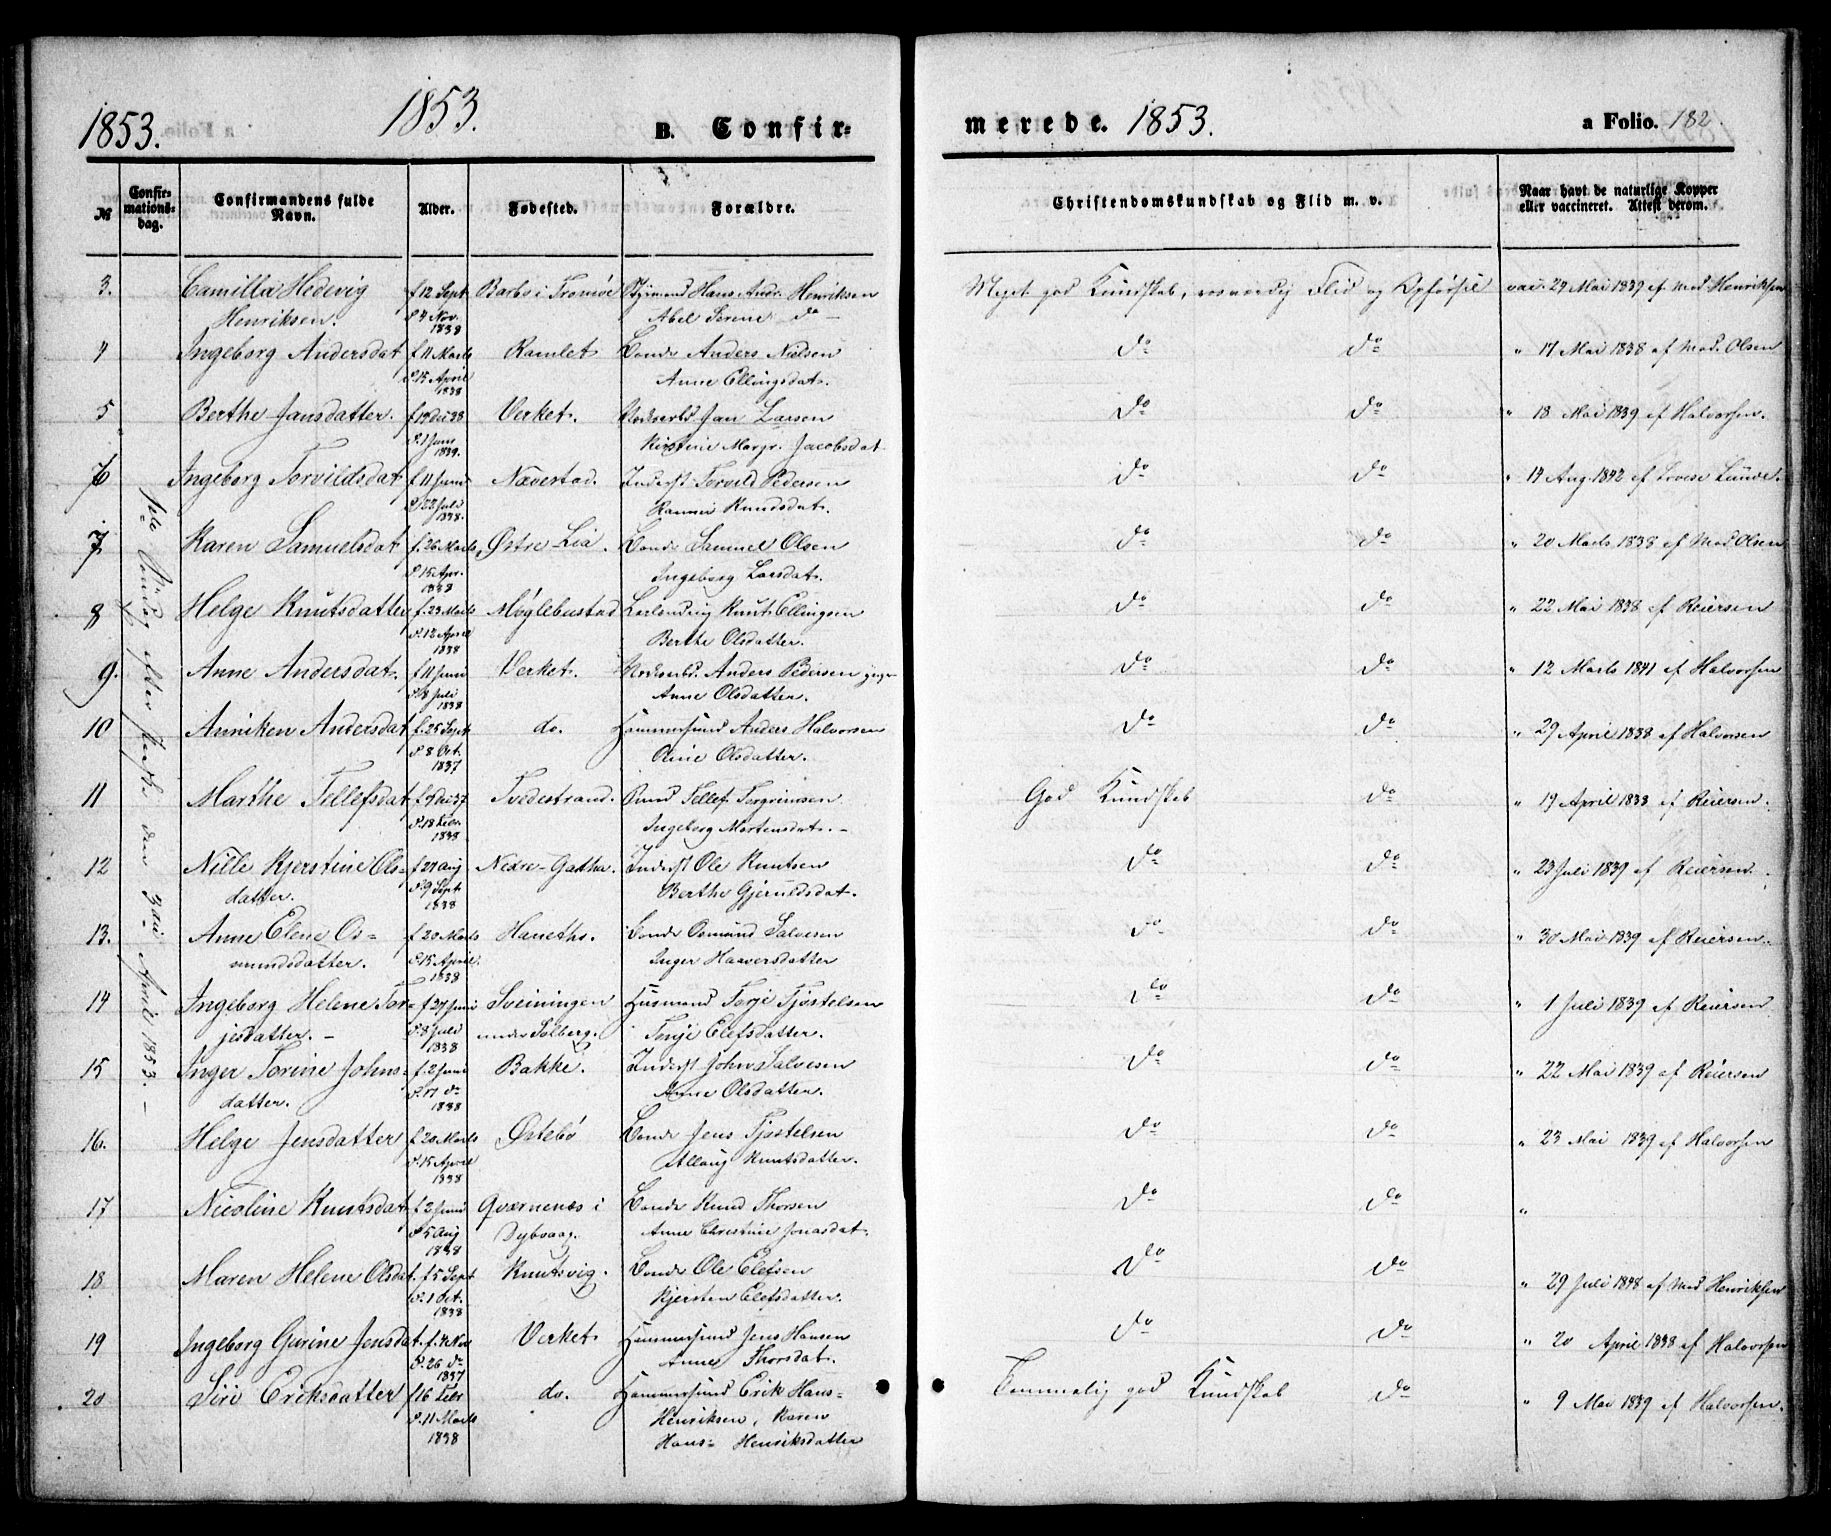 1853. 1853. B. Confir-
merede. 1853. a Folio. 182.
№ Confir-mations-dag. Confirmandens fulde Navn. Alder. Fødested. Forældre. Christendomskundskab og Flid m. v. Naar havt de naturlige Kopper eller vaccineret. Attest derom.
Søndag efter Paaske den 3die April 1853. –
3. Camilla Hedevig f 12 Sept. Barbo i Tromøe Styrmand Hans Andr. Henriksen Meget god Kundskab, rosværdig Flid og Opførsel vac. 29 Mai 1839 af Mad Henriksen
Henriksen. d. 4 Nov. 1838 Abel Serene do
4 Ingeborg Andersdat f 11 Marts Ramlet Bonde Anders Nielsen do do " 17 Mai 1838 af Mad. Olsen
d. 15 April 1838 Anne Ellingsdat.
5 Berthe Jansdatter. Verket. Jan Larsen do do " 18 Mai 1839 af Halvorsen.
1839. Kirstine Margr. Jacobsdat
6 Ingeborg Torvildsdat f 11 Juni Næverstad. Inderst Torvild Pedersen do do " 14 Aug. 1842 af Lunde.
d. 22 Juli 1838. Knudsdat.
7 Karen Samuelsdat f. 26 Marts Østre Lia. Bonde Samuel Olsen do do " 20 Marts 1838 af Mad Olsen
d. 15 Apr. 1838 Ingeborg Larsdat.
8 Helge Knutsdatter f. 23 Marts Møglebustad Knut Ellingsen do do " 22 Mai 1838 af Reiersen
d. 12 April 1838 Berthe Olsdatter.
9. Anne Andersdat. f 11 Juni Verket. Anders Pedersen do do " 12 Marts 1841 af Halvorsen
d. 8 Juli 1838 Anne Olsdatter.
10 Anniken Andersdat f. 25 Sept do. Hammersmed Anders Halvorsen do do " 29 April 1838 af Halvorsen
d. 8 Oct. 1837 Olsdatter.
11 Marthe Tellefsdat Tvedestrand. Tellef Torgrimsen God Kundskab do " 19 April 1838 af Reiersen.
d. 18 Febr. 1838 Ingeborg Mortensdat. –
12 Nille Kjerstine Ols- f 27 Aug Nedre-Gartha. Inderst Ole Knutsen do do " 23 Juli 1839 af Reiersen.
datter. d. 9 Sept. 1838 Berthe Gjeruldsdat.
13. Anne Elene Os- f 20 Marts Haneths. Bonde Osmund Salvesen do do " 30 Mai 1839 af Reiersen.
mundsdatter. d. 15 April. 1838 Inger Haaversdatter
14 Ingeborg Helene Tor- f 27 Juni Sveiningen Husmand Torje Tjøstelsen do do " 1 Juli 1839 af Reiersen
jesdatter. – d. 8 Juli 1838 under Solberg. Elefsdatter.
15 Inger Torine Johns- f. 2 Juni Bakke. Inderst John Salvesen do do " 22 Mai 1839 af Reiersen
datter. d. 17 do 1838 Anne Olsdatter.
16. Helge Jensdatter f 20 Marts Østebø Bonde Jens Tjøstelsen do do " 23 Mai 1839 af Halvorsen
d. 15 April 1838 Knutsdatter.
17 Nicoline Knutsdat f 2 Juni Qværnenæs i Bonde Knud Thorsen do do "
d. 5 Aug 1838 Dybvaag. Anne Christine Jonasdat.
18 Maren Helene Olsdat. f 5 Sept Knutsvig. Bonde Ole Elefsen do do " 29 Juli 1848 af Mad Henriksen
d. 1 Oct. 1838 Kjersten Elefsdatter.
19 Ingeborg Gurine Jensdat. f. 4 Nov Verket Hammersmed Jens Hansen do do " 20 April 1838 af Halvorsen
d. 26 do 1837 Anne Thorsdat.
20 Siri Eriksdatter f 16 Febr do. Hammersmed Erik Hans- Temmelig god Kundskab do " 9 Mai 1839 af Halvorsen.
d. 11 Marts 1838 Henriksen, Karen
Hans- Henriksdatter